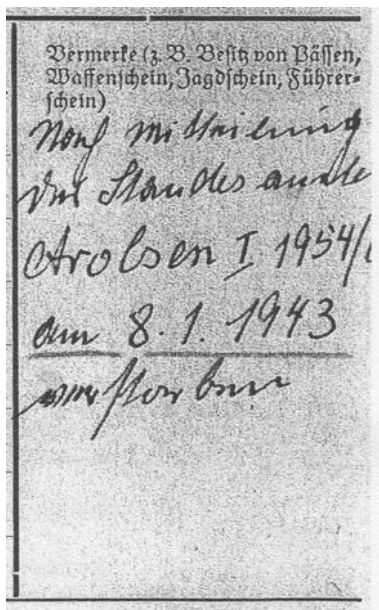 Vermerke (z. B. Besitz von Pässen,
Waffenschein, Jagdschein, Führer-
schein)
Nach Mitteilung
des Standesamts
Arolsen I 1954/
am 8. 1. 1943
verstorben